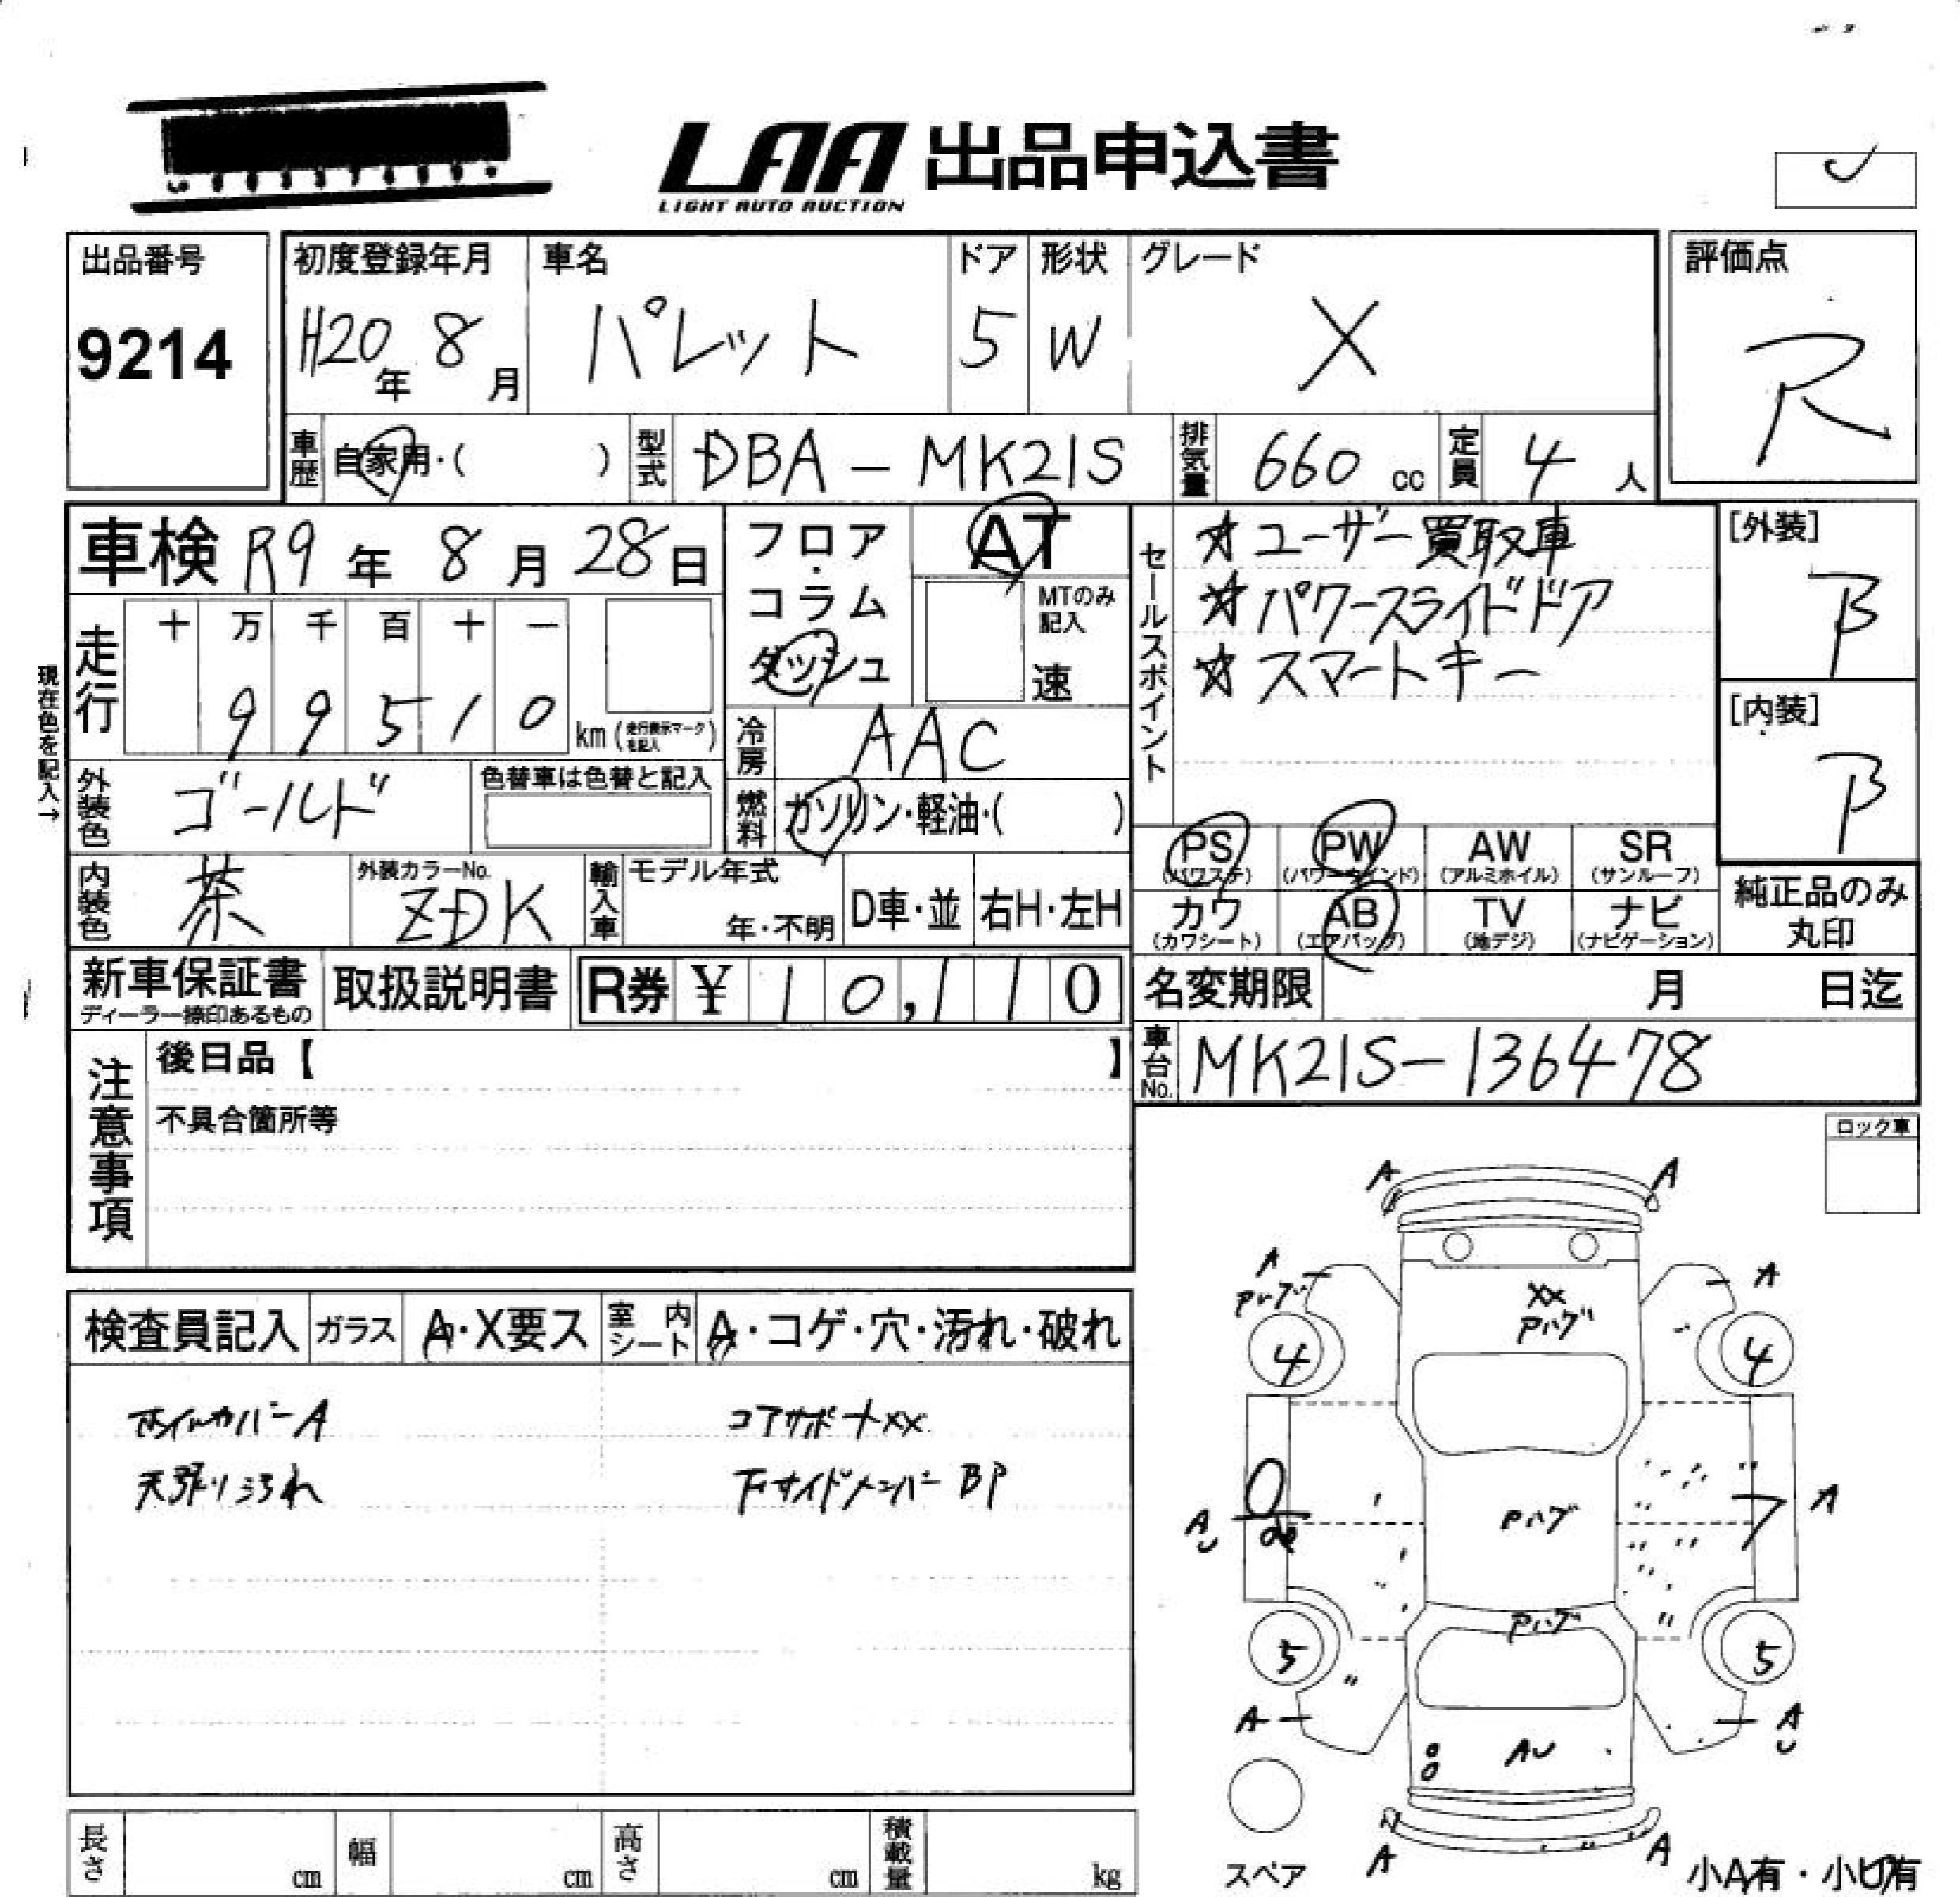 LAA 出品申込書
LIGHT AUTO AUCTION
出品番号
9214
初度登録年月
H20年 8月
車名
パレット
ドア
5
形状
W
グレード
X
評価点
R
車歴 自家用・( )
型式 DBA-MK21S
排気量 660 cc
定員 4 人
車検 R9年 8月 28日
走行 十 万 千 百 十 一
9 9 5 1 0 km (走行表示マークを記入)
現在色を記入→
フロア・コラム ダッシュ
AT
MTのみ記入
速
冷房 AAC
燃料 ガソリン・軽油・( )
セールスポイント
☆ユーザー買取車
☆パワースライドドア
☆スマートキー
[外装]
B
[内装]
B
外装色 ゴールド
色替車は色替と記入
内装色 茶
外装カラーNo.
ZDK
輸入車 モデル年式
年・不明
D車・並 右H・左H
PS (パワステ)
PW (パワーウインド)
AW (アルミホイル)
SR (サンルーフ)
カワ (カワシート)
AB (エアバッグ)
TV (地デジ)
ナビ (ナビゲーション)
純正品のみ丸印
新車保証書
ディーラー捺印あるもの
取扱説明書
R券 ¥ 10,110
名変期限 月 日迄
車台No. MK21S-136478
注意事項
後日品【 】
不具合箇所等
ロック車
検査員記入 ガラス A・X要ス 室内シート A・コゲ・穴・汚れ・破れ
ホイルカバーA
コアサポートXX
天張り汚れ
下サイドメンバーBP
A A
A
Pハゲ
XX
Pハゲ
A
4 4
A
Pハゲ
A
Pハゲ
5 5
A
AU
A
A A
スペア
小A有・小U有
長さ cm
幅 cm
高さ cm
積載量 kg